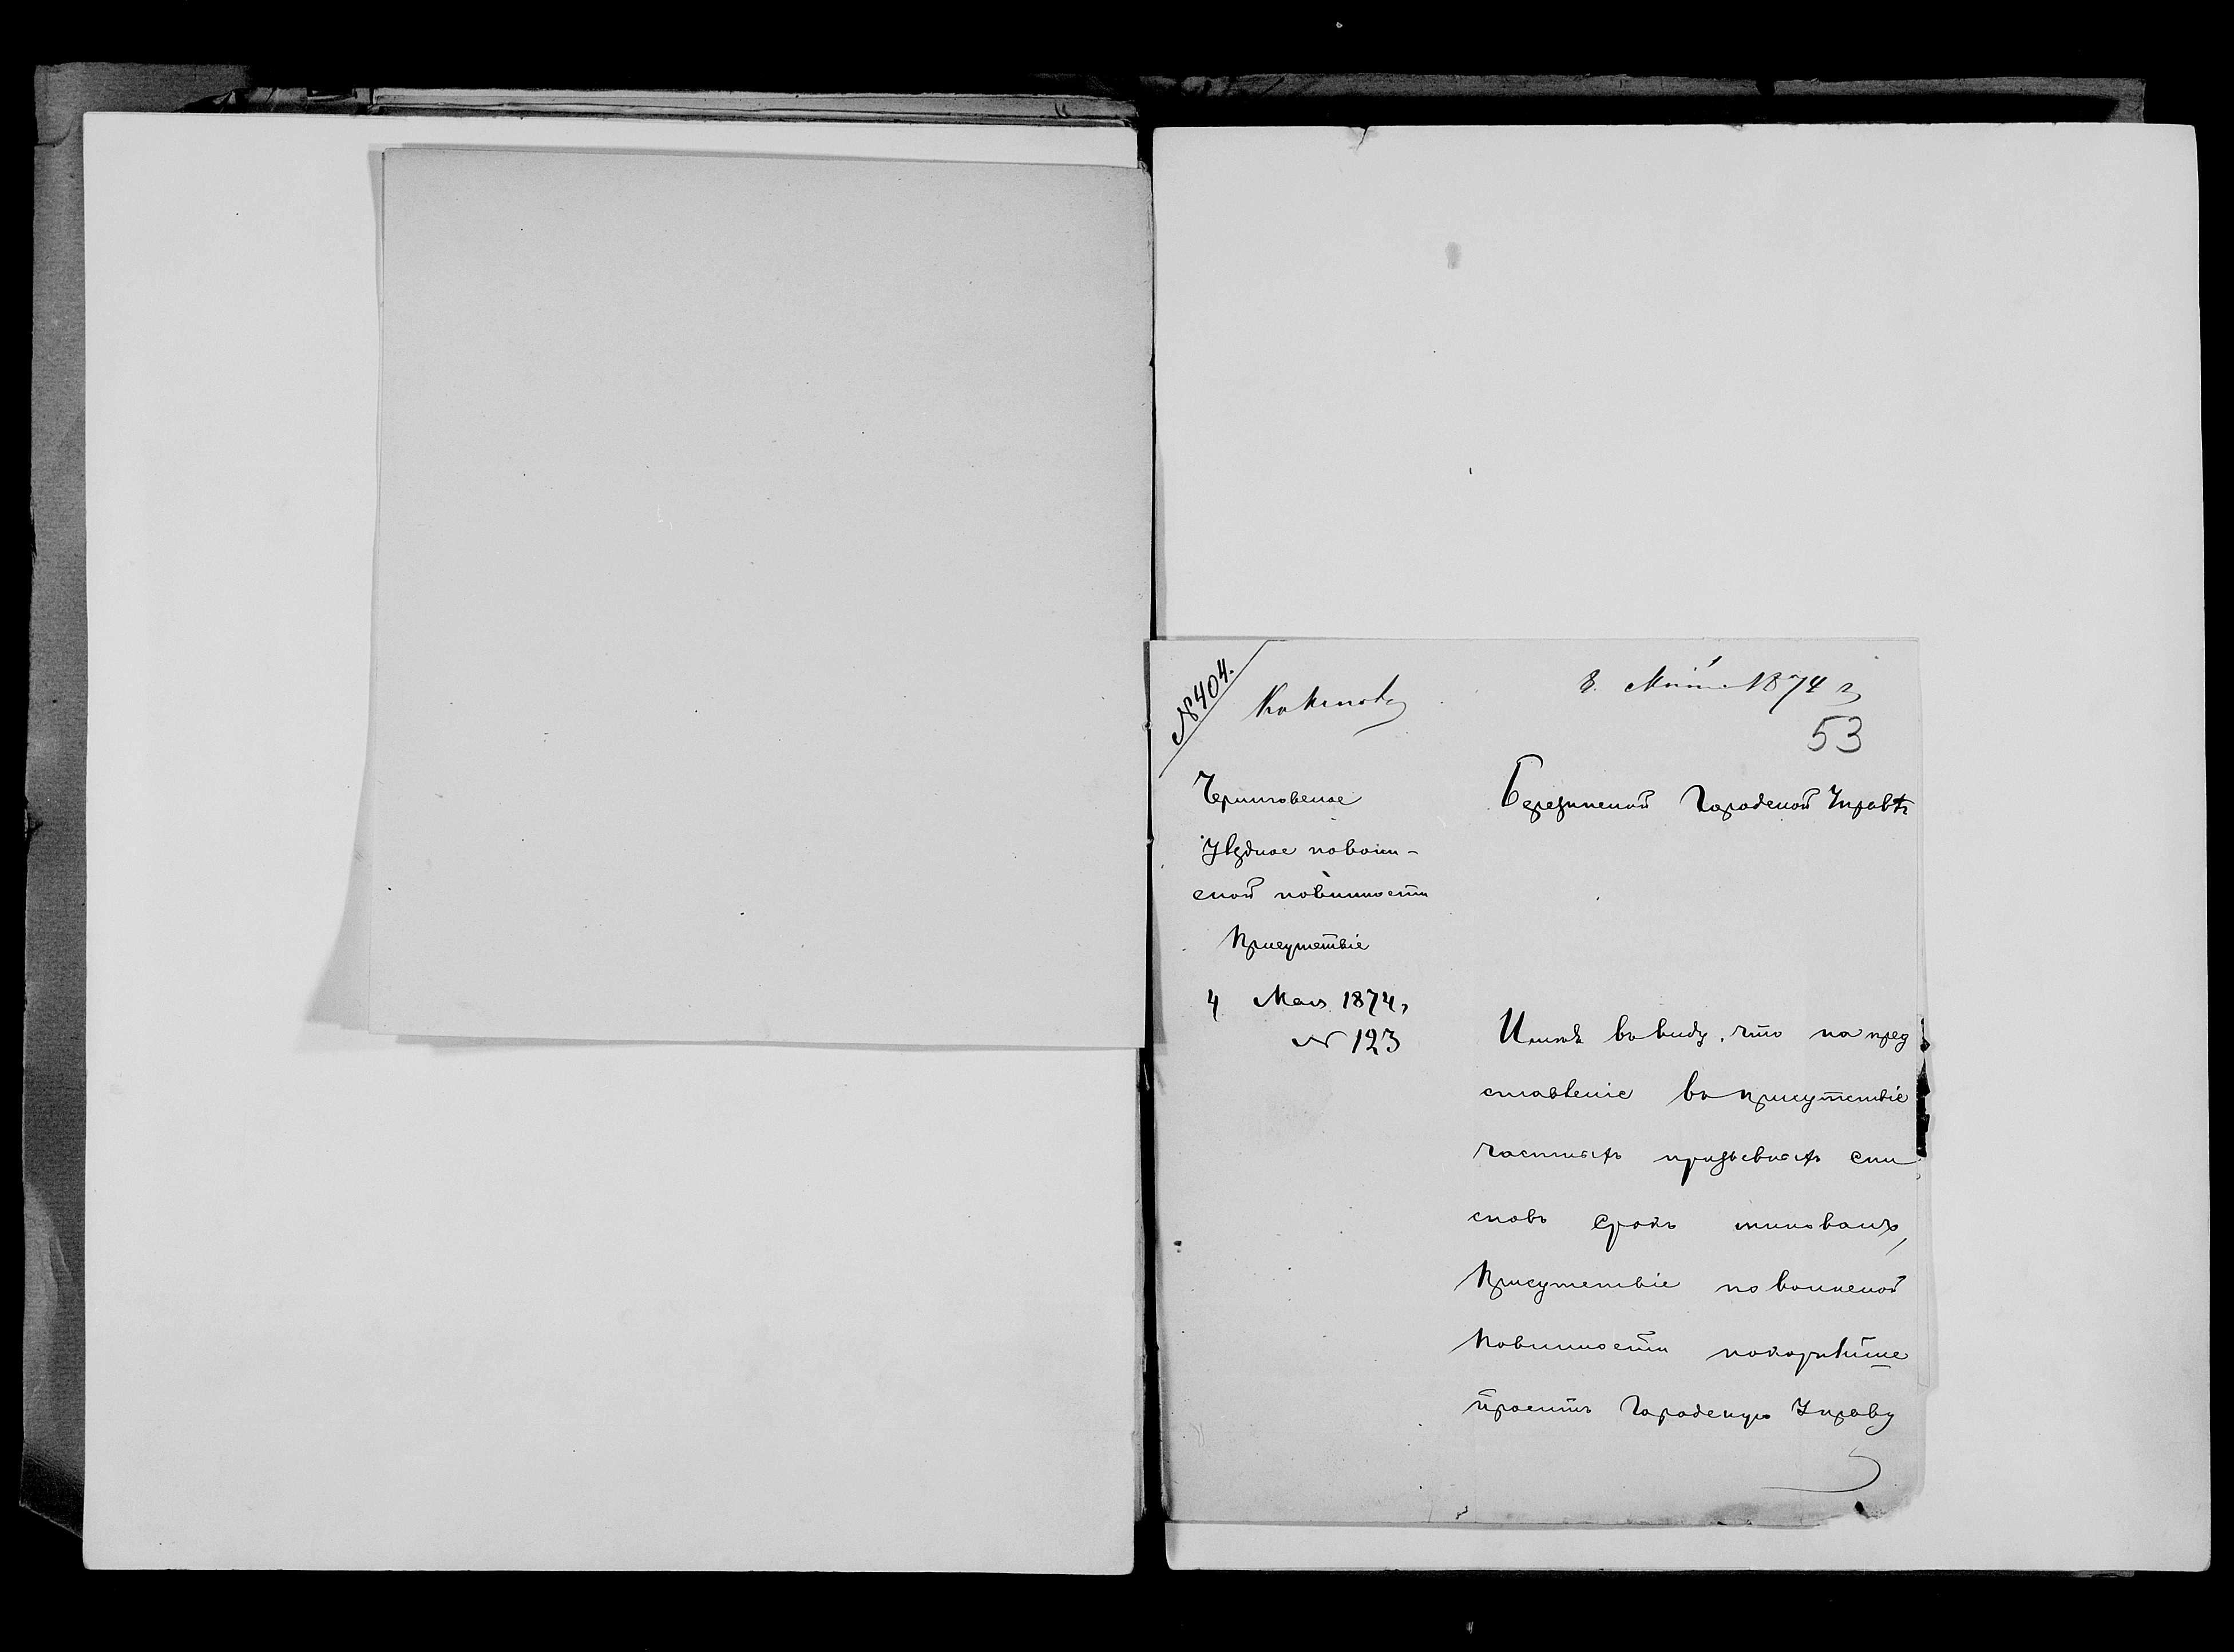 № 404.
8. Мая 1874 г
53
Черниговское
Уѣздное по воин-
ской повинности
Присутствіе
4 Мая 1874 г
№ 123
Березинской Городской Управѣ
Имѣя въ виду, что на пред
ставленіе въ присутствіе
частныхъ призывныхъ спи
сковъ срокъ миновалъ,
Присутствіе по воинской
повинности покорнѣйше
проситъ Городскую Управу